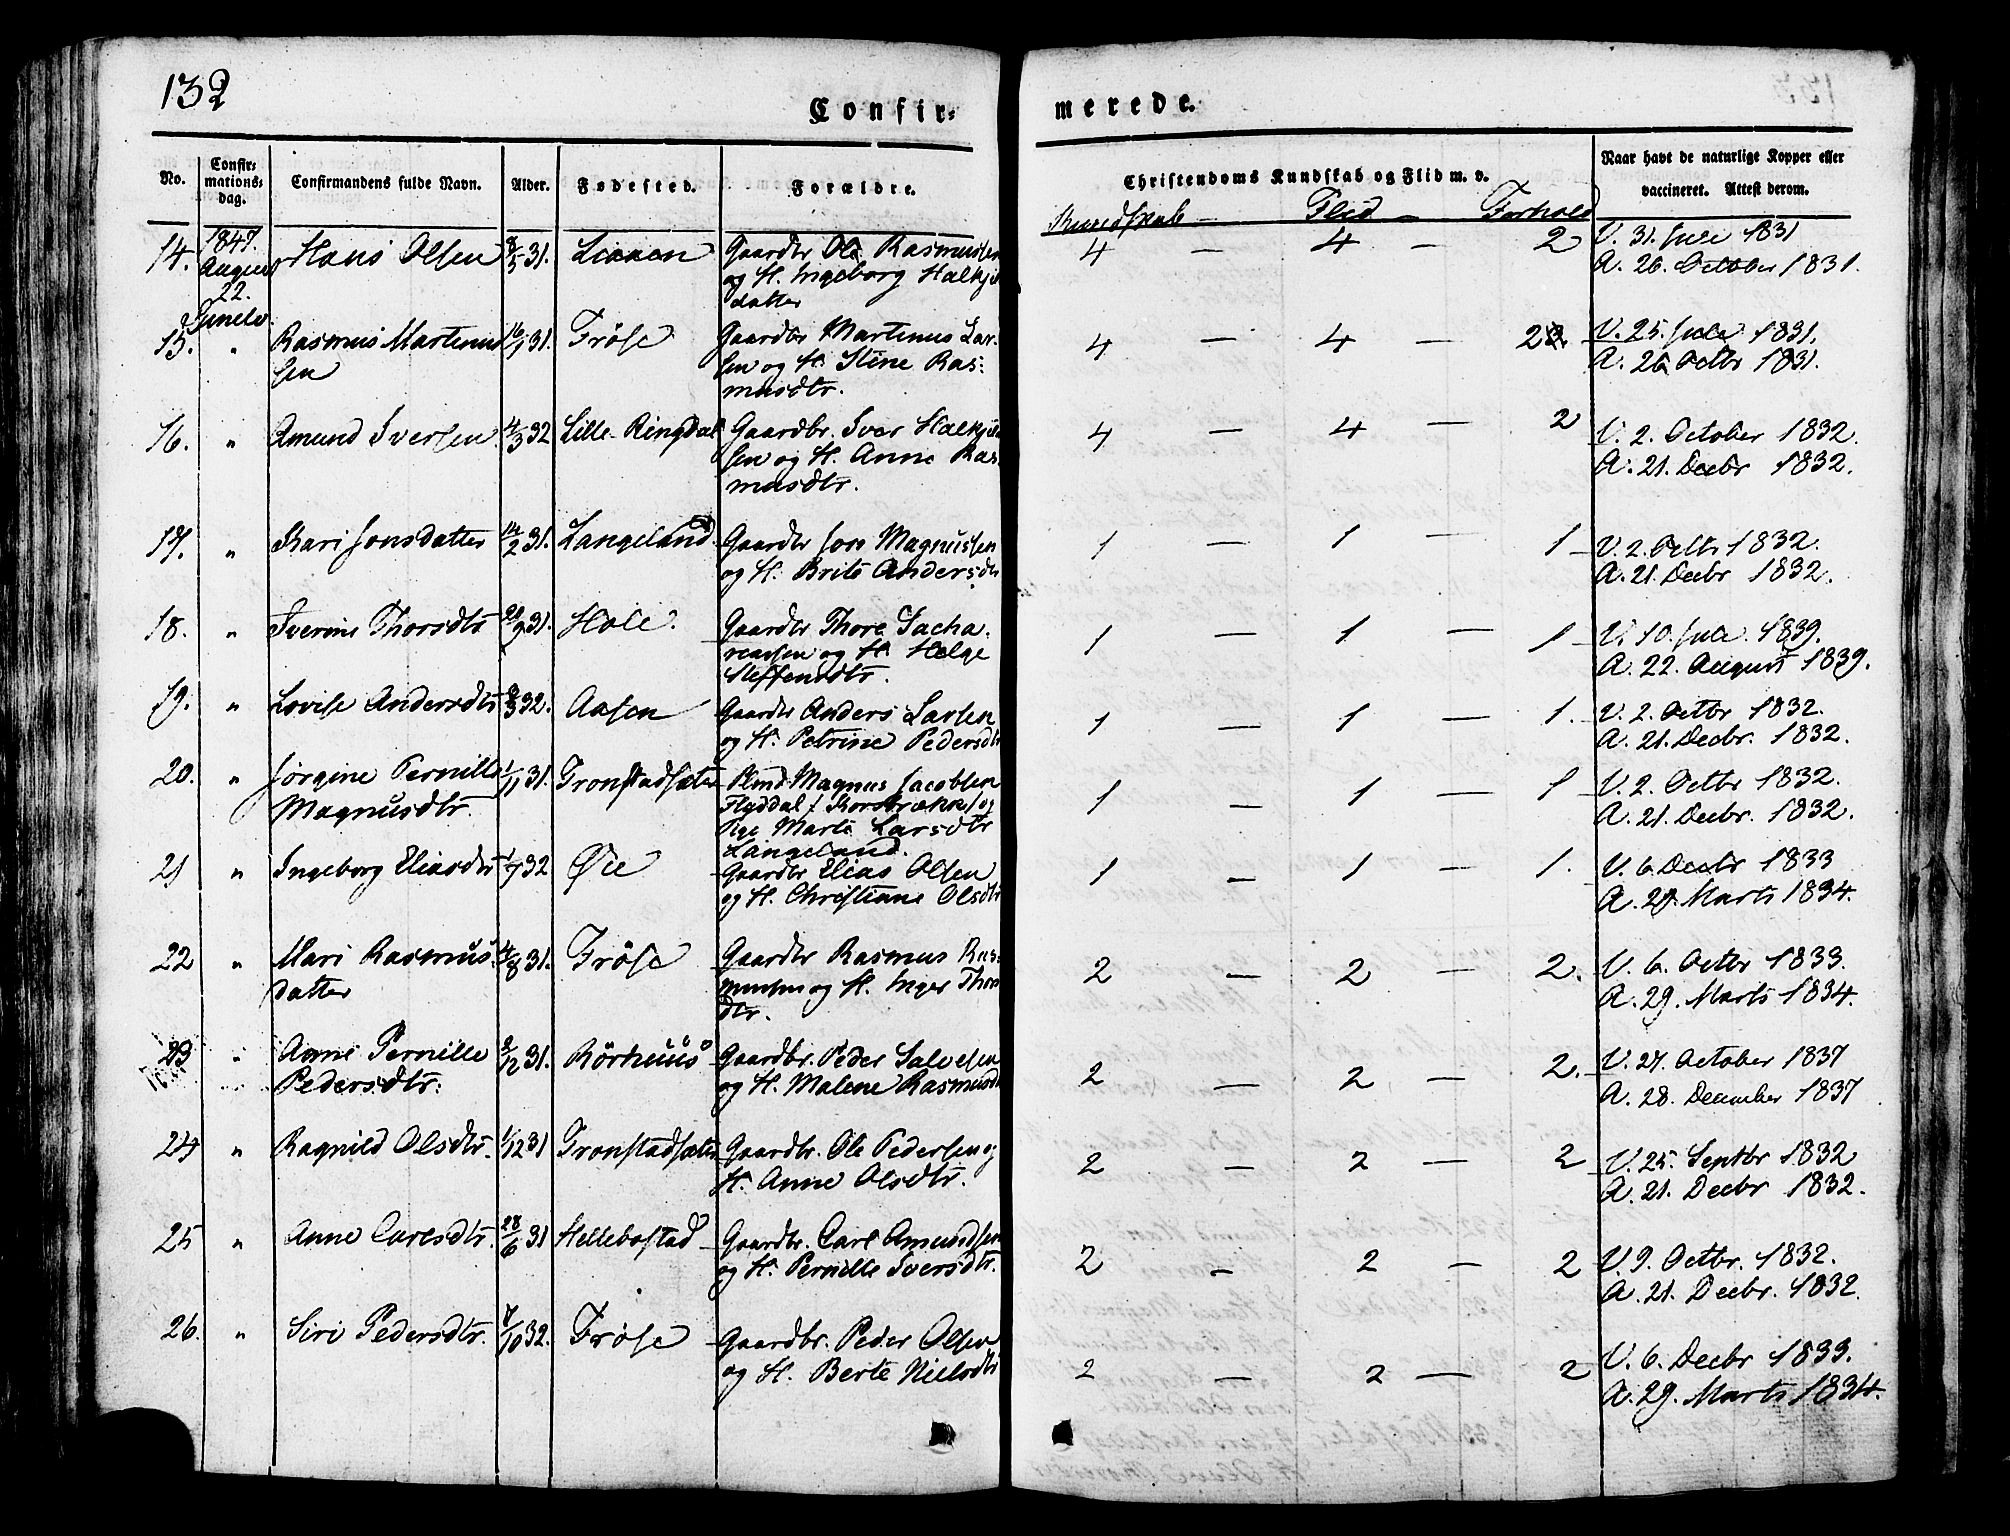 132
Confir-
merede.
No.
Confir-
mations-
dag.
Confirmandens fulde Navn.
Alder.
Fødested.
Forældre.
Christendoms Kundskab og Flid m. v.
Naar havt de naturlige Kopper eller
vaccineret. Attest derom.
Kundskab — Flid — Forhold
1847.
August
22.
14. Hans Olsen 8/5 31. Gaardbr Ole Rasmussen 4 — 4 — 2 V. 31. Juli 1831
og H. Ingeborg Halkjels A. 26. October 1831.
datter
15. " Rasmus Martinus 16/1 31. Frøse Gaardbr Martinus Lar- 4 — 4 — 2 V. 25. Juli 1831.
sen sen og H. Stine Ras- A. 26 Octbr 1831.
musdtr.
16. " Amund Iversen 4/3 32 Lille-Ringdal Gaardbr. Iver Halkjels 4 — 4 — 2 V. 2. October 1832.
sen og H. Anne Ras- A. 21. Decbr 1832.
musdtr.
17. " Kari Jonsdatter 14/2 31. Langeland Gaardbr Jon Magnussen 1 — 1 — 1 V. 2. Octbr 1832.
og H. Brite Andersdtr A. 21. Decbr 1832.
18. " Iverine Thorsdtr 31. Hole. Gaardbr Thore Sacha- 1 — 1 — 1 V. 10. Juli 1839.
riassen og H. Helge A. 22. August 1839.
Steffensdtr.
19. " Lovise Andersdtr 8/3 32. Aasen Gaardbr Anders Larsen 1 — 1 — 1. V. 2. Octbr 1832.
og H. Petrine Pedersdtr A. 21. Decbr. 1832.
20. " Jørgine Pernille 1/11 31. Tronstadsæter Magnus Jacobsen 1 — 1 — 1 V. 2. Octbr 1832.
Magnusdtr. Flyddal og A. 21. Decbr. 1832.
Pige Marte Larsdtr
Langeland.
21 " Ingeborg Eliasdtr 1/7 32 Øie Gaardbr Elias Olsen 1 — 1 — 1. V. 6. Decbr 1833
og H. Christiane Olsdtr A. 29. Marts 1834.
22 " Mari Rasmus- 4/8 31. Frøse Gaardbr Rasmus Ras- 2 — 2 — 2. V. 6. Octbr 1833.
datter mussen og H. Inger Thors A. 29. Marts 1834.
dtr.
23 " Anne Pernille 8/12 31. Rørhuus Gaardbr. Peder Salvesen 2 — 2 — 2. V. 27. October 1837
Pedersdtr. og H. Malene Rasmusdtr A. 28. December 1837
24 " Ragnild Olsdtr. 1/12 31 Tronstadsæter Gaardbr. Ole Pedersen og 2 — 2 — 2 V. 25. Septbr 1832
H. Anne Olsdtr. A. 21. Decbr 1832.
25 " Anne Carlsdtr. 28/6 31 Hellebostad Gaardbr. Carl Amundsen 2 — 2 — 2 V. 9. Octbr. 1832.
og H. Pernille Iversdtr. A. 21. Decbr. 1832.
26. " Siri Pedersdtr. 7/10 32. Frøse Gaardbr. Peder Olsen 2 — 2 — 2 V. 6. Decbr 1833.
og H. Berte Nielsdtr A. 29. Marts 1834.